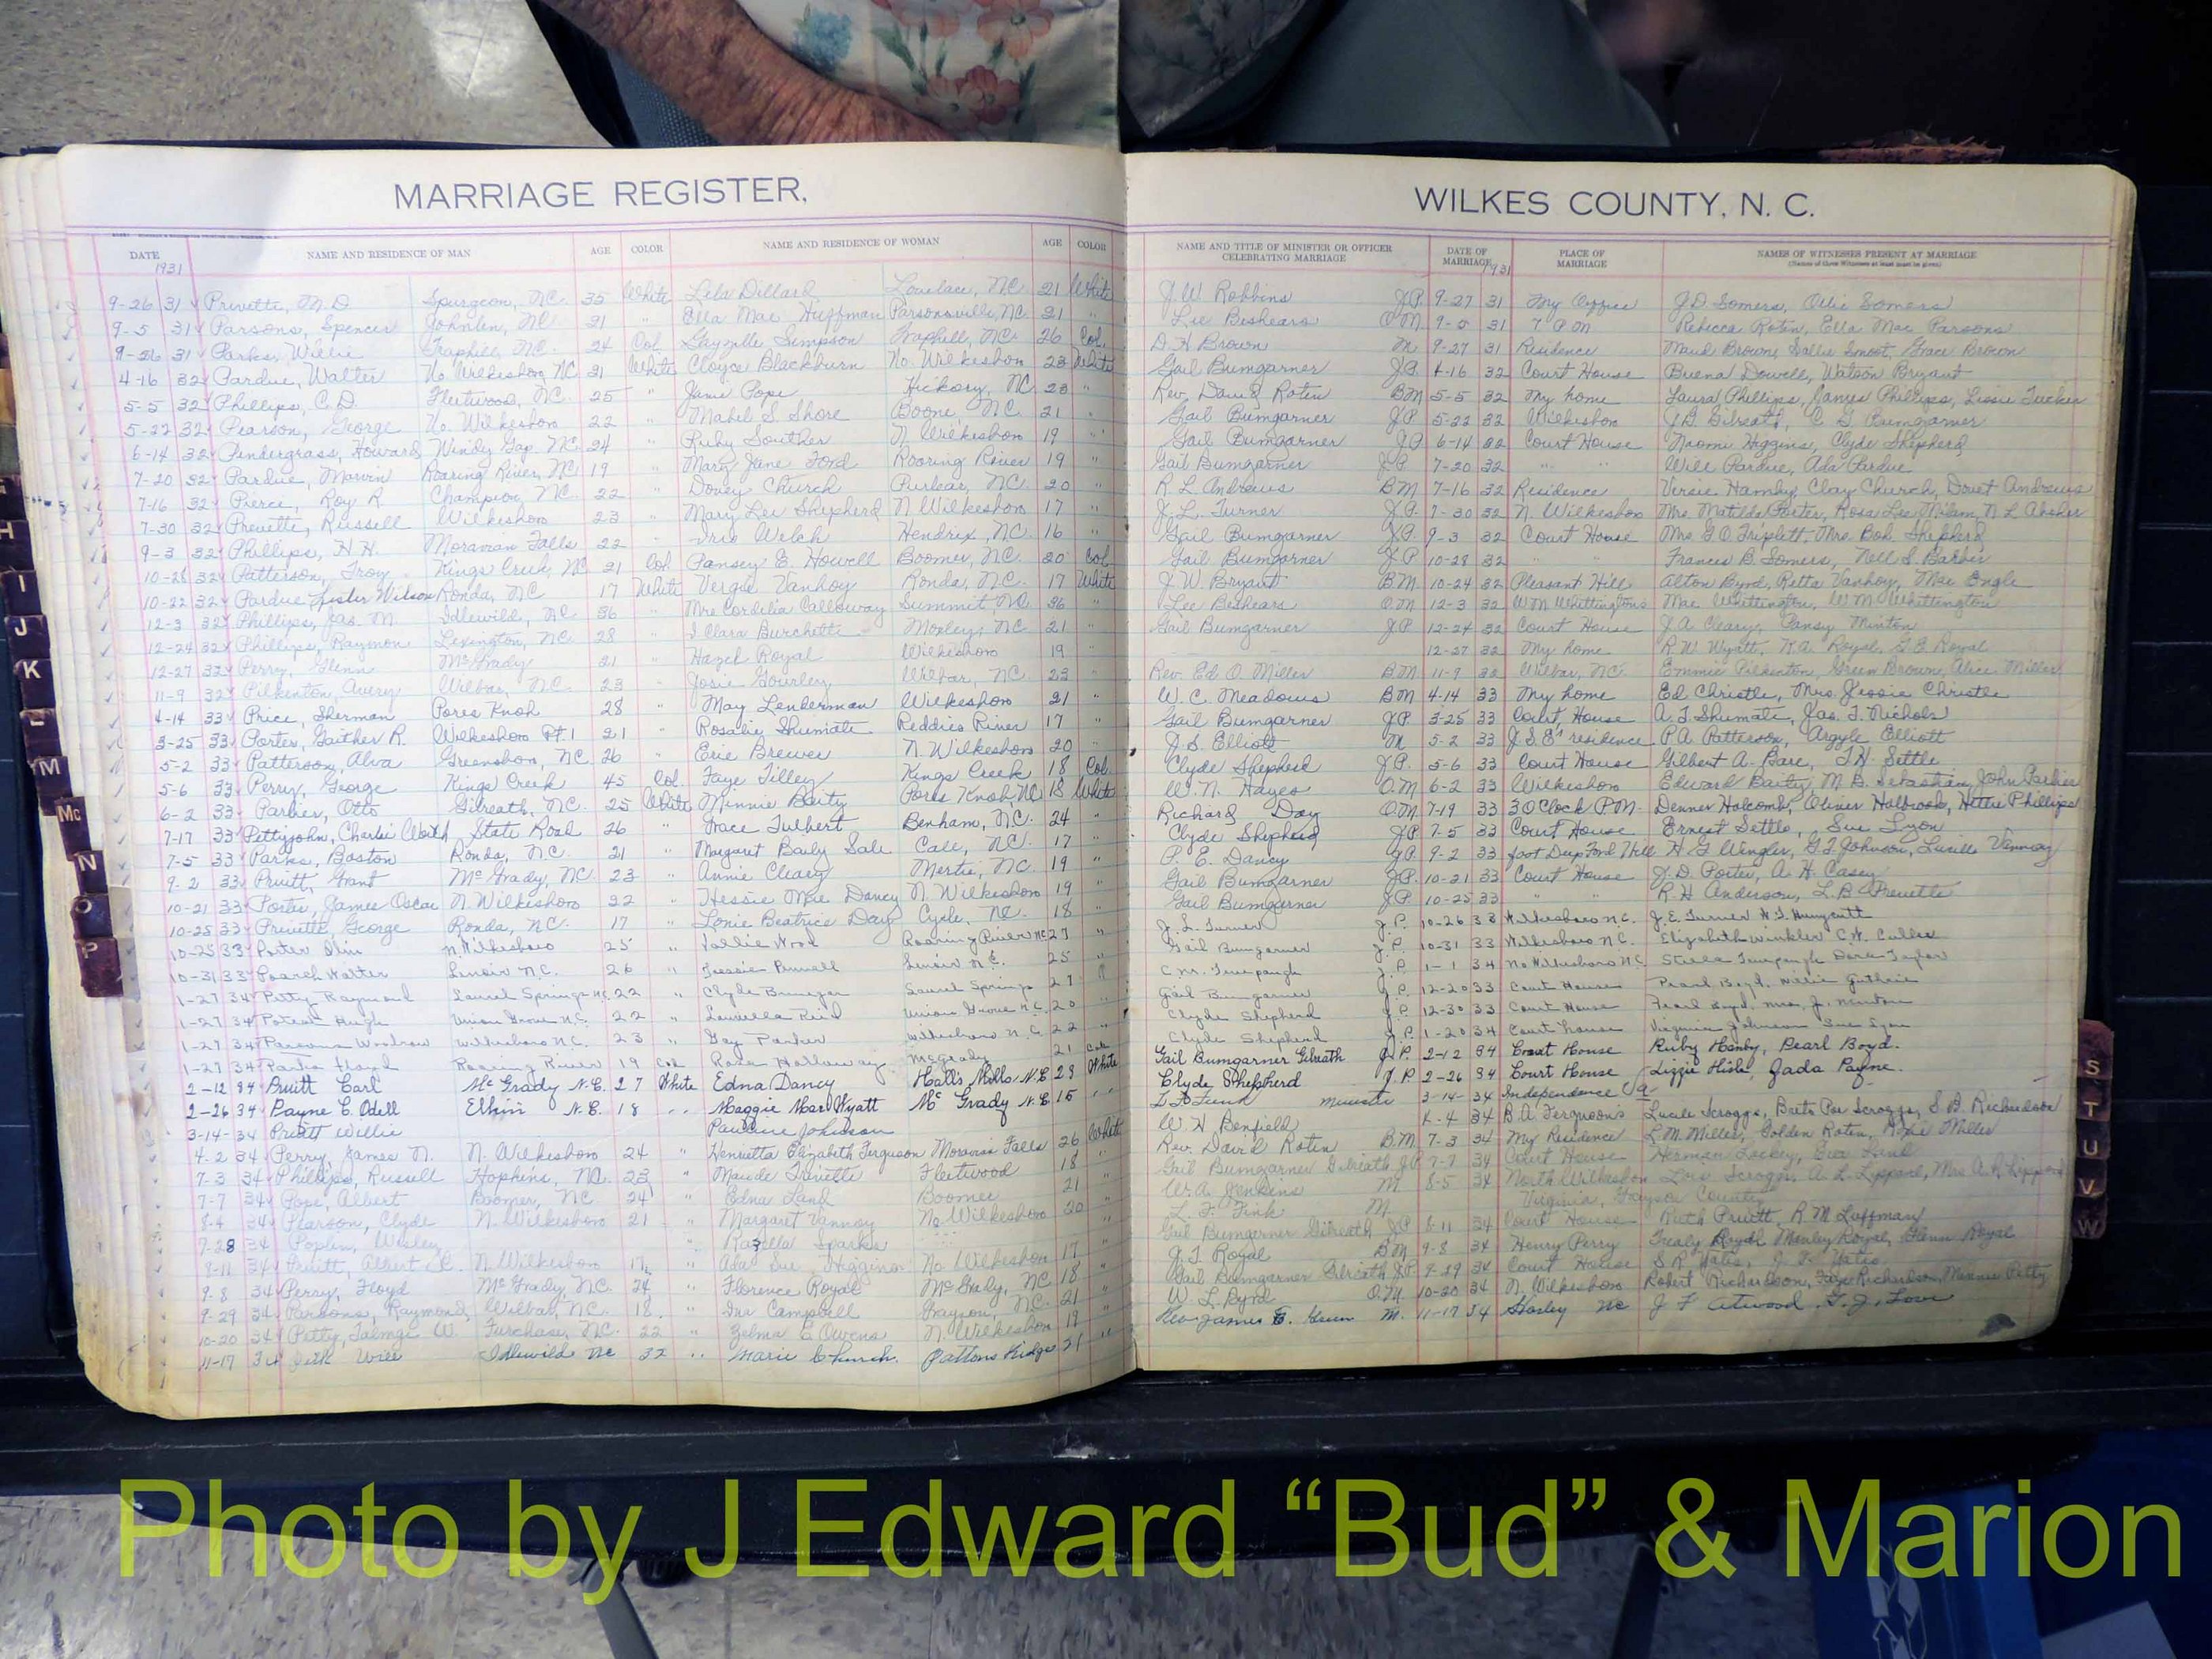 MARRIAGE REGISTER,
WILKES COUNTY, N. C.
DATE NAME AND RESIDENCE OF MAN AGE COLOR NAME AND RESIDENCE OF WOMAN AGE COLOR
NAME AND TITLE OF MINISTER OR OFFICER CELEBRATING MARRIAGE DATE OF MARRIAGE PLACE OF MARRIAGE NAMES OF WITNESSES PRESENT AT MARRIAGE
(Names of three Witnesses at least must be given)
1931
1931
9-26 31 Privette, M. D. Spurgeon, NC. 35 White Lela Dillard Lovelace, NC 21 White
9-5 31 Parsons, Spencer 21 " Ella Mae Huffman Parsonsville, NC. 21 "
9-26 31 Parks, Willie Traphill, NC. 24 Col Simpson Traphill, NC. 26 Col.
4-16 32 Pardue, Walter No. Wilkesboro, NC 21 White Cloyce Blackburn No. Wilkesboro 23 White
5-5 32 Phillips, C. D. Fleetwood, NC. 25 " Janie Pope Hickory, NC 28 "
5-22 32 Pearson, George No. Wilkesboro 22 " Mabel S. Shore Boone NC. 21 "
6-14 32 Pendergrass, Howard Windy Gap NC. 24 " Ruby Souther N. Wilkesboro 19 "
7-20 32 Pardue, Marvin Roaring River, NC 19 " Mary Jane Ford Roaring River 19 "
7-16 32 Pierce, Roy R Champion, NC. 22 " Dovey Church Purlear, NC. 20 "
7-30 32 Prevette, Russell Wilkesboro 23 " Mary Lee Shepherd N Wilkesboro 17 "
9-3 32 Phillips, H. H. Moravian Falls 22 " Iris Welch Hendrix, NC. 16 "
10-28 32 Patterson, Troy Kings Creek, NC 21 Col Pansey E. Howell Boomer, NC. 20 Col.
10-22 32 Pardue Lester Wilson Ronda, NC 17 White Vergie Vanhoy Ronda, N.C. 17 White
12-3 32 Phillips, Jas. M. Idlewild, NC 36 " Mrs Cordelia Calloway Summit NC 36 "
12-24 32 Phillips, Raymon Lexington, NC 28 " I Clara Burchette Moxley, NC 21 "
12-27 32 Perry, Glenn McGrady 21 " Hazel Royal Wilkesboro 19 "
11-9 32 Pilkenton, Avery Wilbar, NC. 23 " Josie Gourley Wilbar, NC 23 "
4-14 33 Price, Sherman Pores Knob 28 " May Lenderman Wilkesboro 21 "
3-25 33 Porter, Gaither R. Wilkesboro Rt 1 21 " Rosalie Shumate Reddies River 17 "
5-2 33 Patterson, Alva Greensboro, NC. 26 " Erie Brewer N. Wilkesboro 20 "
5-6 33 Perry, George Kings Creek 45 Col. Faye Tilley Kings Creek 18 Col.
6-2 33 Parlier, Otto Gilreath, NC. 25 White Minnie Baity Pores Knob NC 18 White
7-17 33 Pettyjohn, Charlie State Road 26 " Grace Tulbert Benham, NC. 24 "
7-5 33 Parks, Boston Ronda, NC. 21 " Margaret Baily Sale Call, NC. 17 "
9-2 33 Pruitt, Grant McGrady, NC 23 " Annie Cleary Mertie, NC 19 "
10-21 33 Porter, James Oscar N Wilkesboro 22 " Hessie Mae Dancy N. Wilkesboro 19 "
10-25 33 Prevette, George Ronda, NC. 17 " Lonie Beatrice Day Cycle, NC. 18 "
10-25 33 Porter N. Wilkesboro 25 " Wood Roaring River NC 27 "
10-31 33 Poarch Walter Lenoir N.C. 26 " Jessie Lenoir N.C. 25 "
1-27 34 Petty Raymond Laurel Springs N.C. 22 " Clyde Laurel Springs 27 "
1-27 34 Poteat Hugh Union Grove N.C. 22 " Reid Union Grove N.C. 20 "
1-27 34 Parsons Woodrow Wilkesboro N.C. 23 " Gay Parker Wilkesboro N.C. 22 "
1-27 34 Parks Floyd Roaring River 19 Col Rosa Holloway McGrady 21 Col
2-12 34 Pruitt Carl McGrady N.C. 27 White Edna Dancy Hall's Mills, N.C 23 White
2-26 34 Payne C. Odell Elkin N.C. 18 " Maggie Mae Wyatt McGrady N.C 15 "
3-14-34 Pruitt Willie Pauline Johnson
4-2 34 Perry, James N. N. Wilkesboro 24 " Henrietta Elizabeth Ferguson Moravian Falls 26 White
7-3 34 Phillips, Russell Hopkins, NC. 23 " Maude Trivette Fleetwood 18 "
7-7 34 Pope, Albert Boomer, NC 24 " Edna Land Boomer 21 "
8-4 34 Pearson, Clyde N. Wilkesboro 21 " Margaret Vannoy No Wilkesboro 20 "
7-28 34 Poplin, Wesley " Rozella Sparks
8-11 34 Pruitt, Albert N. Wilkesboro 17 " Ada Sue Higgins No Wilkesboro 17 "
9-8 34 Perry, Floyd McGrady, N.C. 24 " Florence Royal McGrady, NC 18 "
9-29 34 Parsons, Raymond Wilbar, NC. 18 " Ina Campbell Grayson, N.C. 21 "
10-20 34 Petty, Talmage W. Furchase, NC. 22 " Zelma E Owens N. Wilkesboro 19 "
11-17 34 Will Idlewild NC 32 " Marie Church. Pattons Ridge 21 "
J. W. Robbins J.P. 9-27 31 My Office J. D. Somers, Ollie Somers
Lee Beshears O.M. 9-5 31 7 P.M Rebecca Roten, Ella Mae Parsons
D. H Brown M 9-27 31 Residence Maud Brown, Sallie Smoot, Grace Brown
Gail Bumgarner J.P. 4-16 32 Court House Buena Dowell, Watson Bryant
Rev. David Roten BM 5-5 32 My home Laura Phillips, James Phillips, Lessie Tucker
Gail Bumgarner JP 5-22 32 Wilkesboro J.D. Gilreath, C G Bumgarner
Gail Bumgarner J.P 6-14 32 Court House Naomi Higgins, Clyde Shepherd
Gail Bumgarner J.P. 7-20 32 " " Will Pardue, Ada Pardue
R. L. Andrews BM 7-16 32 Residence Versie Hamby, Clay Church, Andrews
J. L. Turner J.P. 7-30 32 N. Wilkesboro Mrs. Matilda Porter, Rosa Lee Milam, N L Absher
Gail Bumgarner J.P. 9-3 32 Court House Mrs. F. O. Triplett, Mrs. Bob Shepherd
Gail Bumgarner J.P 10-28 32 " Frances B. Somers, Nell S. Barber
J W. Bryant BM 10-24 32 Pleasant Hill Alton Byrd, Retta Vanhoy, Mae Engle
Lee Beshears O.M 12-3 32 W M Whittington's Mae Whittington, W M Whittington
Gail Bumgarner J.P 12-24 32 Court House J. A. Cleary, Pansy Minton
12-27 32 My home R. W. Wyatt, K.A. Royal, G. E Royal
Rev. Ed O. Miller BM 11-9 32 Wilbar, NC. Emmie Pilkenton, Green Brown, Alice Miller
W. C. Meadows BM 4-14 33 My home Ed Christle, Mrs. Jessie Christle
Gail Bumgarner J.P. 3-25 33 Court House A. J. Shumate, Jas. T. Nichols
J. S. Elliott M 5-2 33 J. S. E's residence P.A. Patterson, Argyle Elliott
Clyde Shepherd J.P. 5-6 33 Court House Gilbert A. Bare, T.H. Settle
W. N. Hayes O.M 6-2 33 Wilkesboro Edward Baity, M. D. Sebastian, John Parlier
Richard Day O.M. 7-19 33 3 O'Clock P.M. Denner Holcomb, Oliver Holbrook, Hettie Phillips
Clyde Shepherd J.P 7-5 33 Court House Ernest Settle, Sue Lyon
P. E. Dancy J.P. 9-2 33 foot Deep Ford Hill H G Wingler, G. T. Johnson, Lucille Vannoy
Gail Bumgarner J.P. 10-21 33 Court House J. D. Porter, A. H. Casey
Gail Bumgarner J.P 10-25 33 " " R. H Anderson, L. B. Prevette
J. L. Turner J.P. 10-26 33 Wilkesboro N.C. J. E. Turner
Gail Bumgarner J.P. 10-31 33 Wilkesboro N.C. Elizabeth Winkler
J.P. 1-1 34 No Wilkesboro N.C. Stella
Gail Bumgarner J.P. 12-20 33 Court House Pearl Boyd, Guthrie
Clyde Shepherd J.P. 12-30 33 Court House Pearl Boyd, Mrs. J. Minton
Clyde Shepherd J.P. 1-20 34 Court house Virginia Johnson Sue Lyon
Gail Bumgarner Gilreath J.P. 2-12 34 Court House Ruby Henby, Pearl Boyd.
Clyde Shepherd J.P 2-26 34 Court House Lizzie Hisle, Jada Payne.
3-14-34 Independence Va
W. H Benfield 4-4 34 B. A. Ferguson's Lucile Scroggs, Scroggs, S. B. Richardson
Rev. David Roten B.M. 7-3 34 My Residence L.M. Miller, Golden Roten, Miller
Gail Bumgarner Gilreath J.P 7-7 34 Court House Herman Lackey, Land
W. A. Jenkins M 8-5 34 North Wilkesboro Lois Scroggs, A. L. Lippard, Mrs A. L Lippard
L. F. Fink M. Virginia, Grayson County
Gail Bumgarner Gilreath J.P 8-11 34 Court House Ruth Pruitt, R. M Laffman
J. T. Royal BM 9-8 34 Henry Perry Royal, Manley Royal, Glenn Royal
Gail Bumgarner Gilreath J.P 9-29 34 Court House S. R. Yates, Yates
W. L. Byrd O.M. 10-20 34 N. Wilkesboro Robert Richardson, Faye Richardson, Minnie Petty
Rev James M. 11-17 34 NC J F Atwood
H
I
J
K
L
M
Mc
N
O
P
S
T
U
V
W
Photo by J Edward “Bud” & Marion